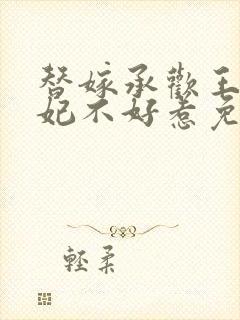 替嫁承歡王
妃不好惹免
輕柔